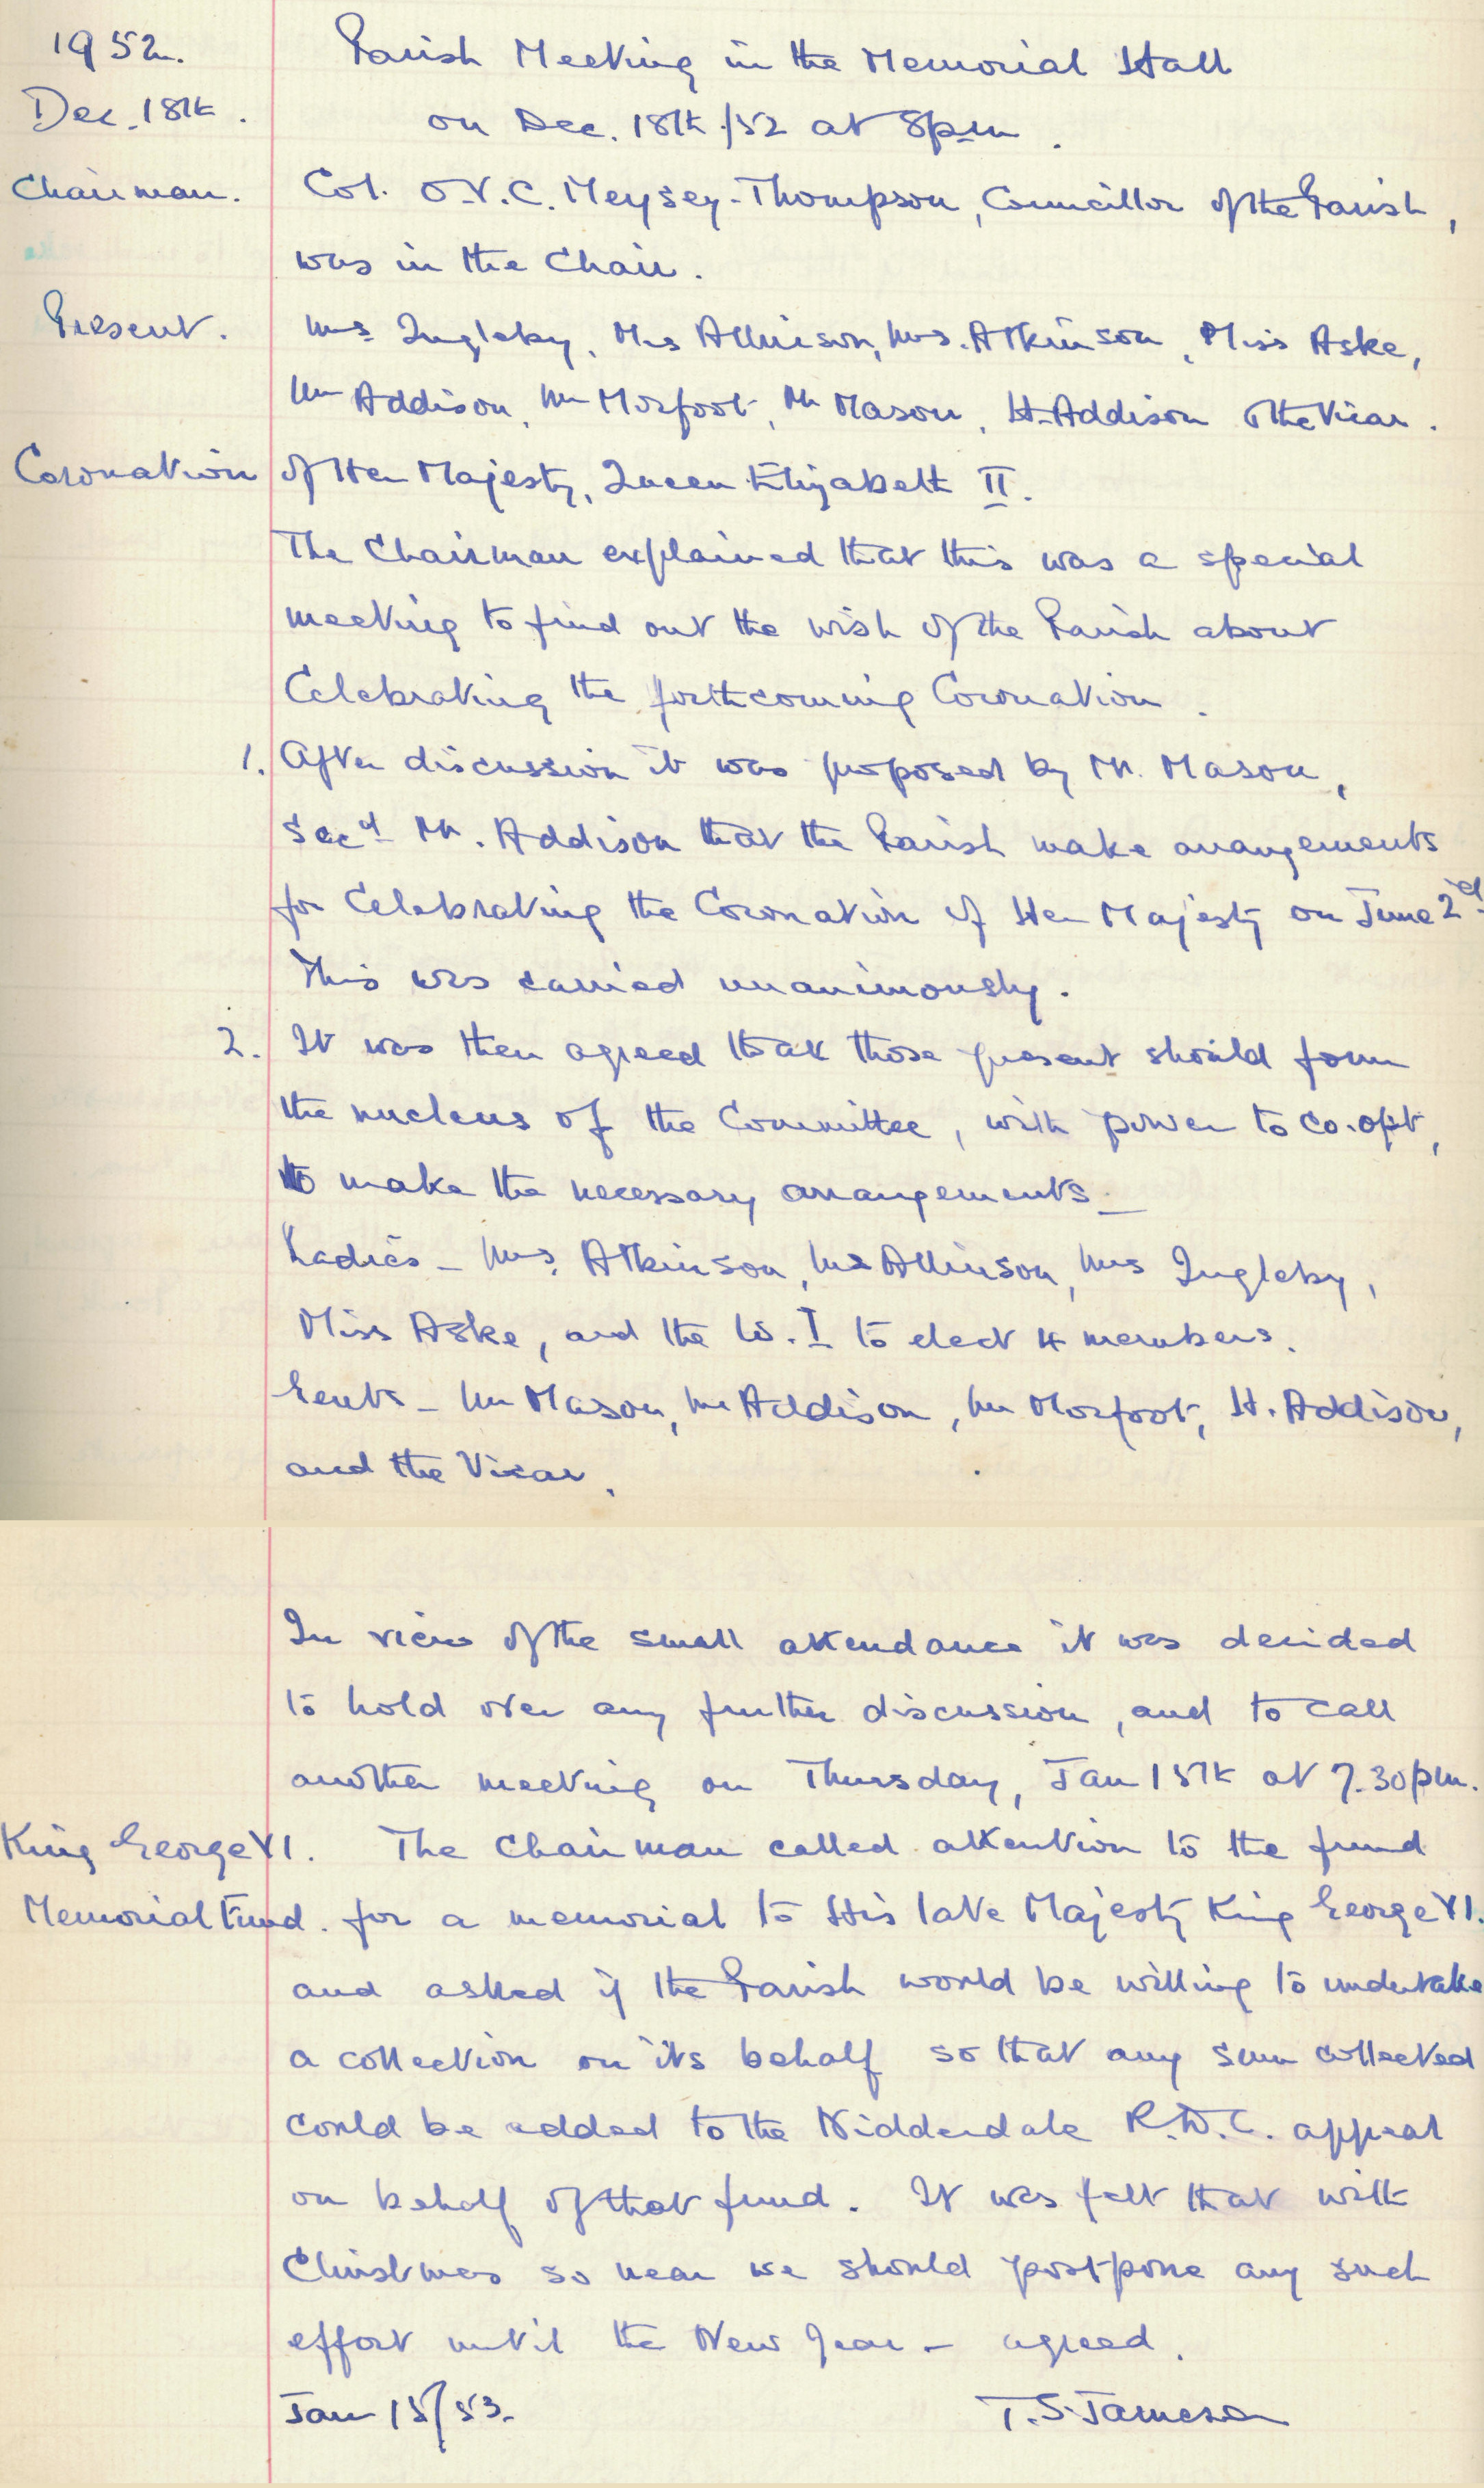 1952. Parish Meeting in the Memorial Hall
Dec. 18th. on Dec. 18th/52 at 8pm.
Chairman. Col. O.V.C. Meysey-Thompson, Councillor of the Parish,
was in the Chair.
Present. Mrs Ingleby, Mrs Allinson, Mrs. Atkinson, Miss Aske,
Mr Addison, Mr Morfoot, Mr Mason, H. Addison & the Vicar.
Coronation of Her Majesty, Queen Elizabeth II.
The Chairman explained that this was a special
meeting to find out the wish of the Parish about
Celebrating the forthcoming Coronation.
1. After discussion it was proposed by Mr. Mason,
Secd Mr. Addison that the Parish make arrangements
for Celebrating the Coronation of Her Majesty on June 2nd.
This was carried unanimously.
2. It was then agreed that those present should form
the nucleus of the Committee, with power to co.opt,
to make the necessary arrangements_
Ladies - Mrs. Atkinson, Mrs Allinson, Mrs Ingleby,
Miss Aske, and the W.I to elect 4 members.
Gents - Mr Mason, Mr Addison, Mr Morfoot, H. Addison,
and the Vicar.
In view of the small attendance it was decided
to hold over any further discussion, and to call
another meeting on Thursday, Jan 15th at 7.30pm.
King George VI. The Chairman called attention to the fund
Memorial Fund. for a memorial to His late Majesty King George VI.
and asked if the Parish would be willing to undertake
a collection on its behalf so that any sum collected
could be added to the Nidderdale R.D.C. appeal
on behalf of that fund. It was felt that with
Christmas so near we should postpone any such
effort until the New Year - agreed.
Jan 15/53. T.S. Jameson